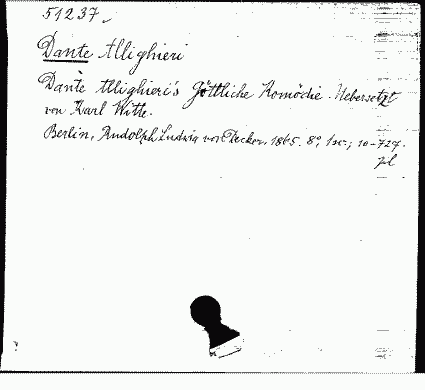 51237
Dante Allighieri
Dante Allighieri's Göttliche Komödie. Uebersetzt
von Karl Witte.
Berlin, Rudolph Ludwig von Decker, 1865. 8°,